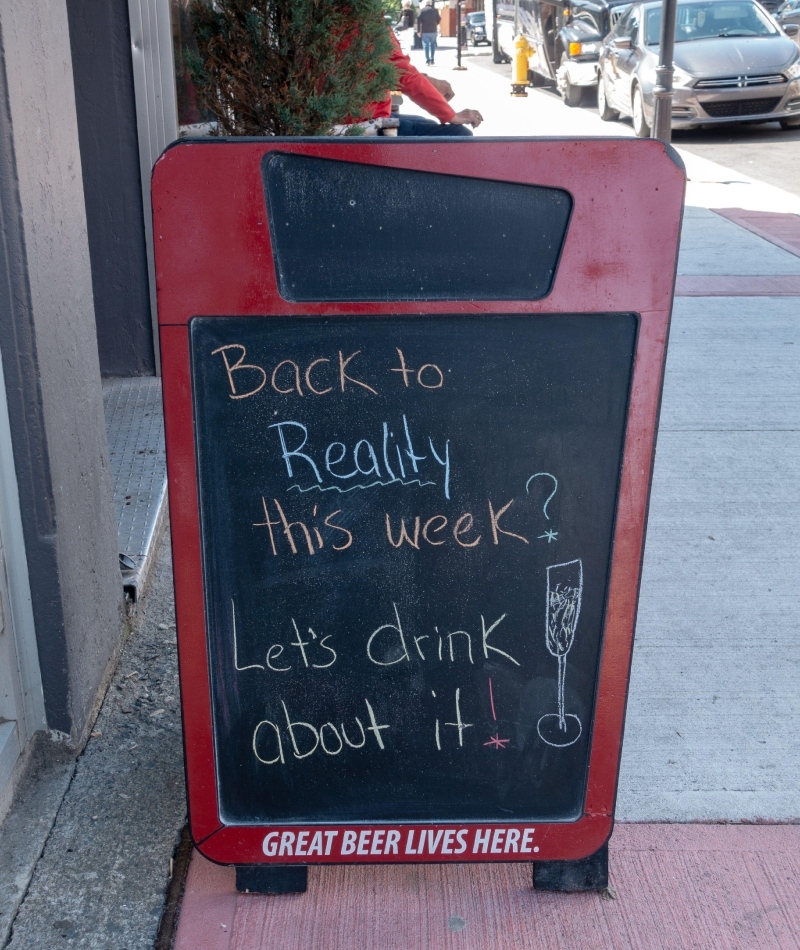 Back to
Reality
this week?
Let's drink
about it!
GREAT BEER LIVES HERE.